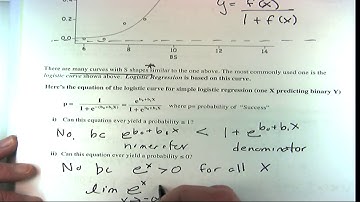 y = f(x) / 1 + f(x)
0.2
0.0
6 8 10 12 14
BS
There are many curves with S shapes similar to the one above. The most commonly used one is the
logistic curve shown above. Logistic Regression is based on this curve.
Here's the equation of the logistic curve for simple logistic regression (one X predicting binary Y)
p = 1 / 1+e^-(b₀+b₁X) = e^b₀+b₁X / 1+e^b₀+b₁X where p= probability of "Success"
i) Can this equation ever yield a probability ≥ 1?
No, bc e^b₀+b₁X < 1 + e^b₀+b₁X
numerator denominator
ii) Can this equation ever yield a probability ≤ 0?
No bc e^x > 0 for all X
lim e^x
x→-∞